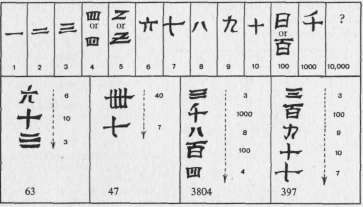 一 二 三 四 or 四 五 or 五 六 七 八 九 十 日 or 百 千 ?
1 2 3 4 5 6 7 8 9 10 100 1000 10,000
六 6
十 10
三 3
63
卌 40
七 7
47
三 3
千 1000
八 8
百 100
四 4
3804
三 3
百 100
九 9
十 10
七 7
397